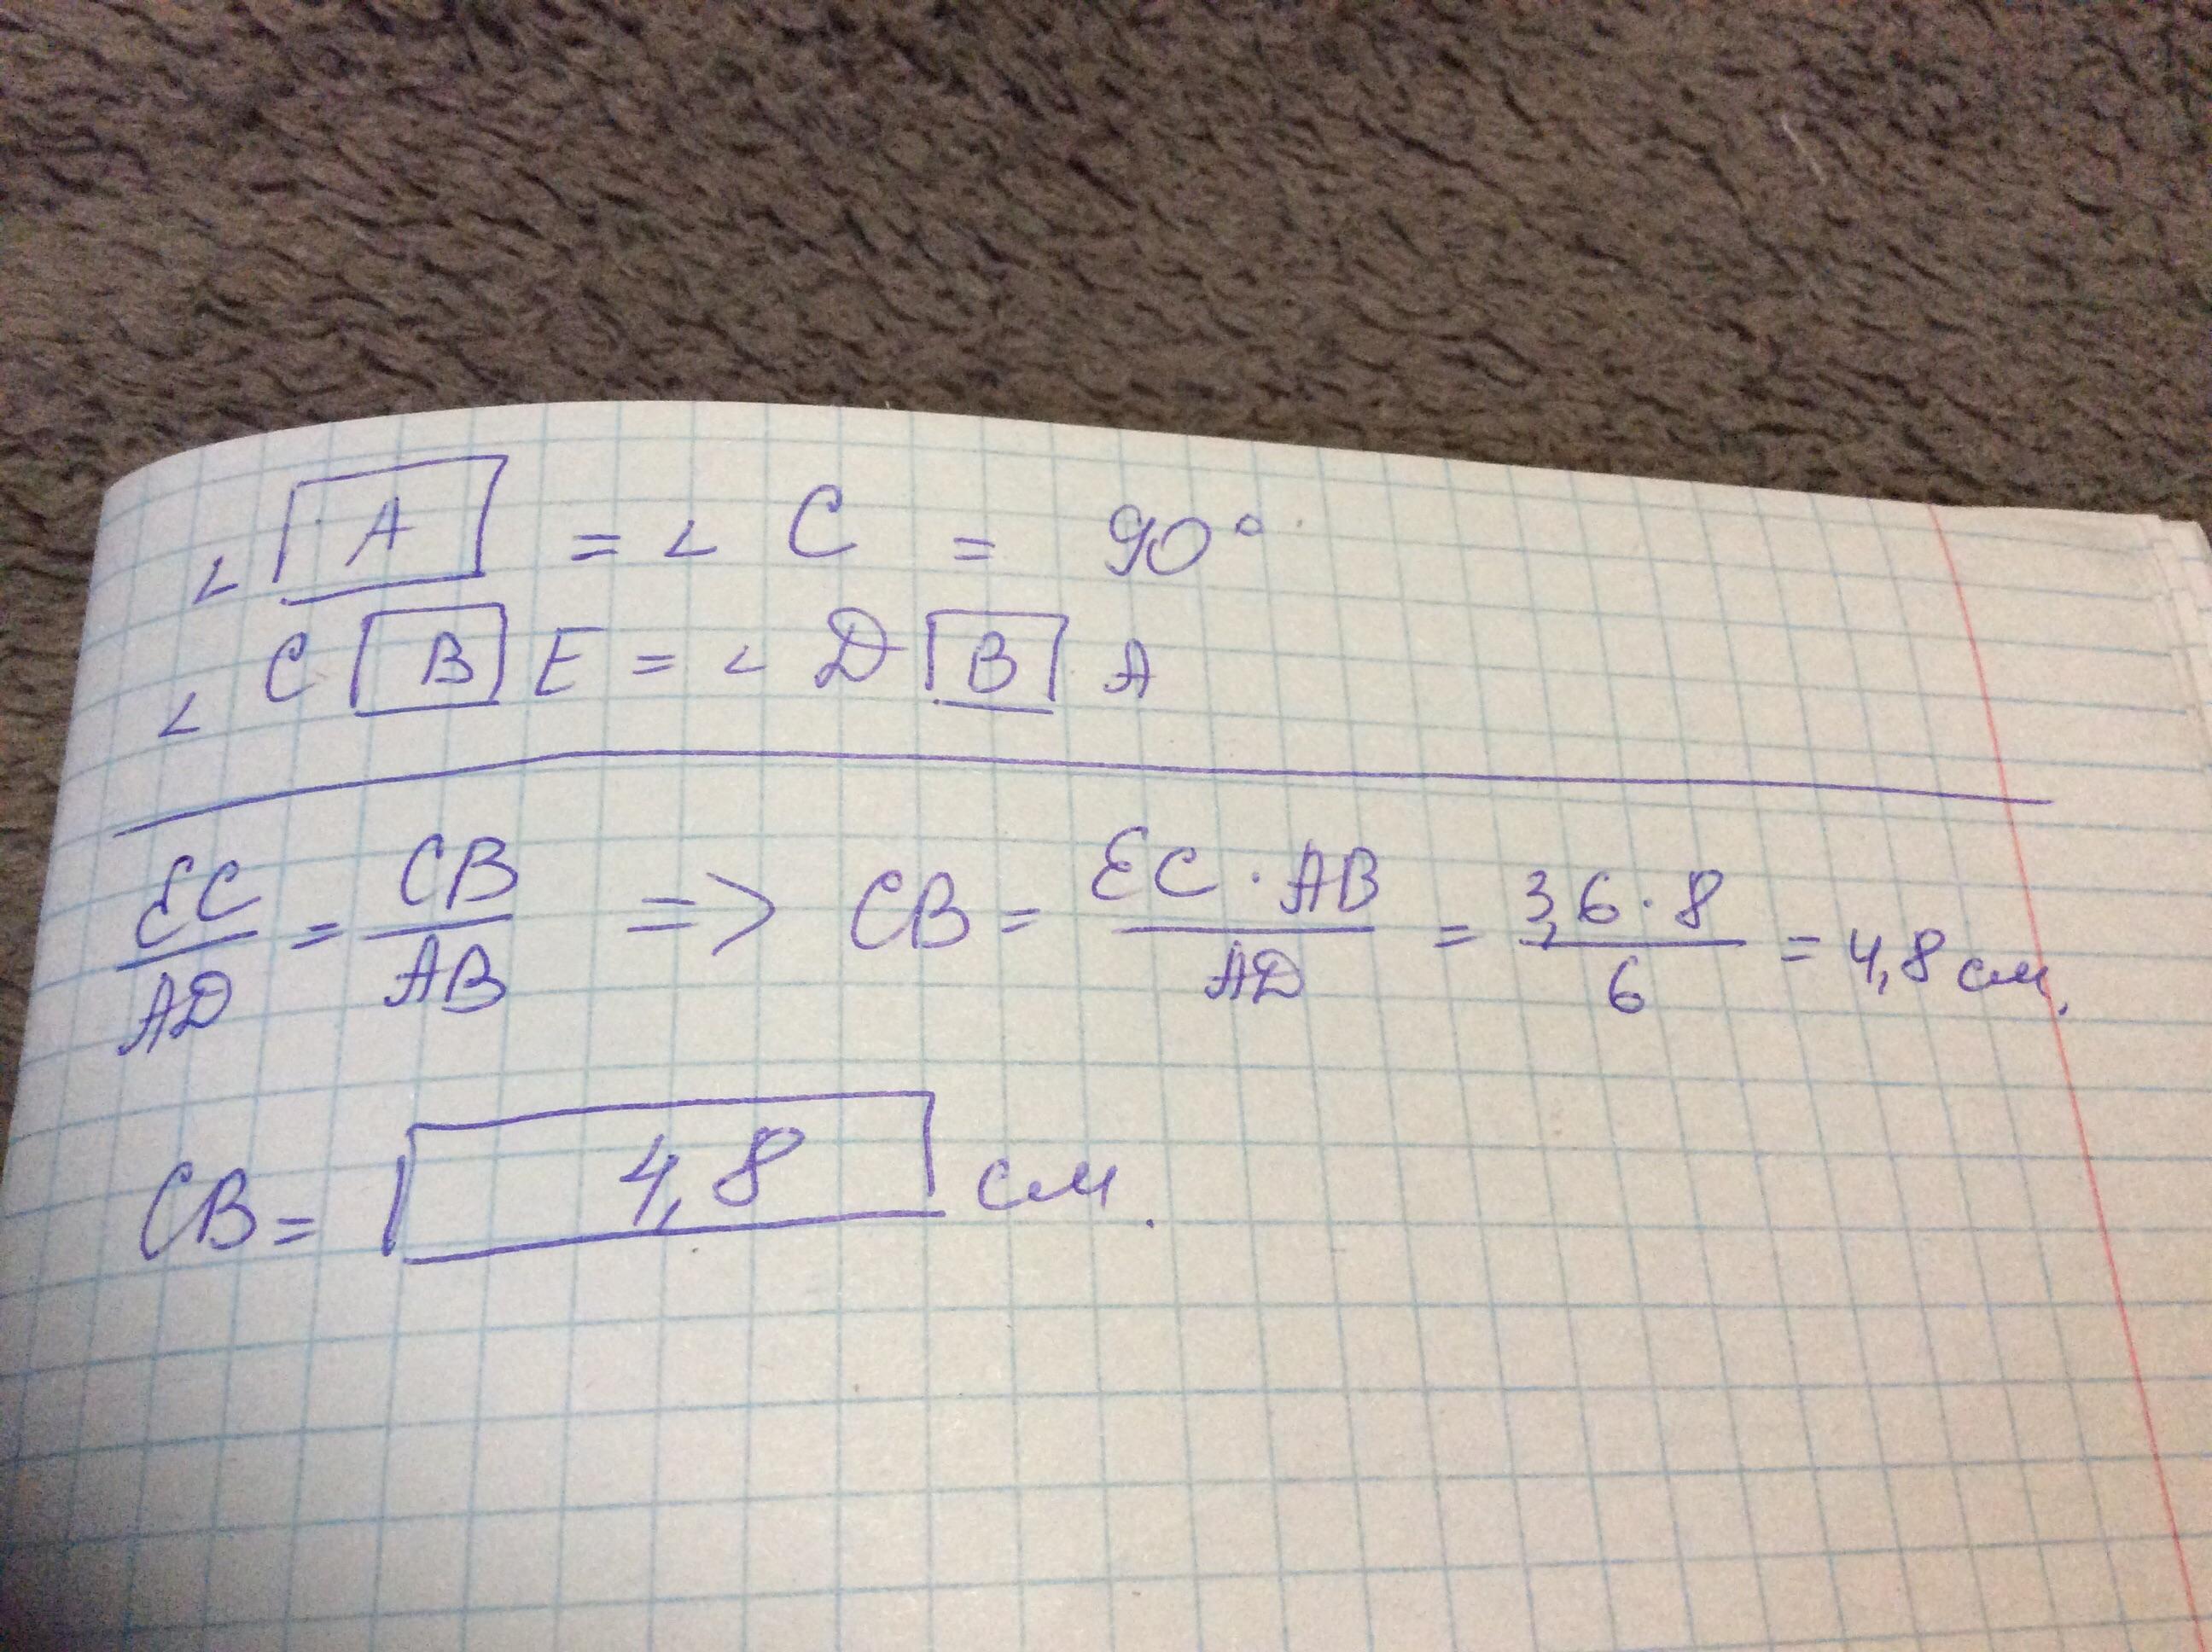 ∠ A = ∠ C = 90°
∠ C B E = ∠ D B A
EC/AD = CB/AB => CB = EC · AB/AD = 3,6 · 8/6 = 4,8 см.
CB = 4,8 см.